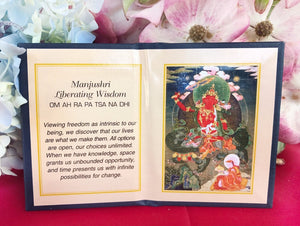 Manjushri
Liberating Wisdom
OM AH RA PA TSA NA DHI
Viewing freedom as intrinsic to our
being, we discover that our lives
are what we make them. All options
are open, our choices unlimited.
When we have knowledge, space
grants us unbounded opportunity,
and time presents us with infinite
possibilities for change.